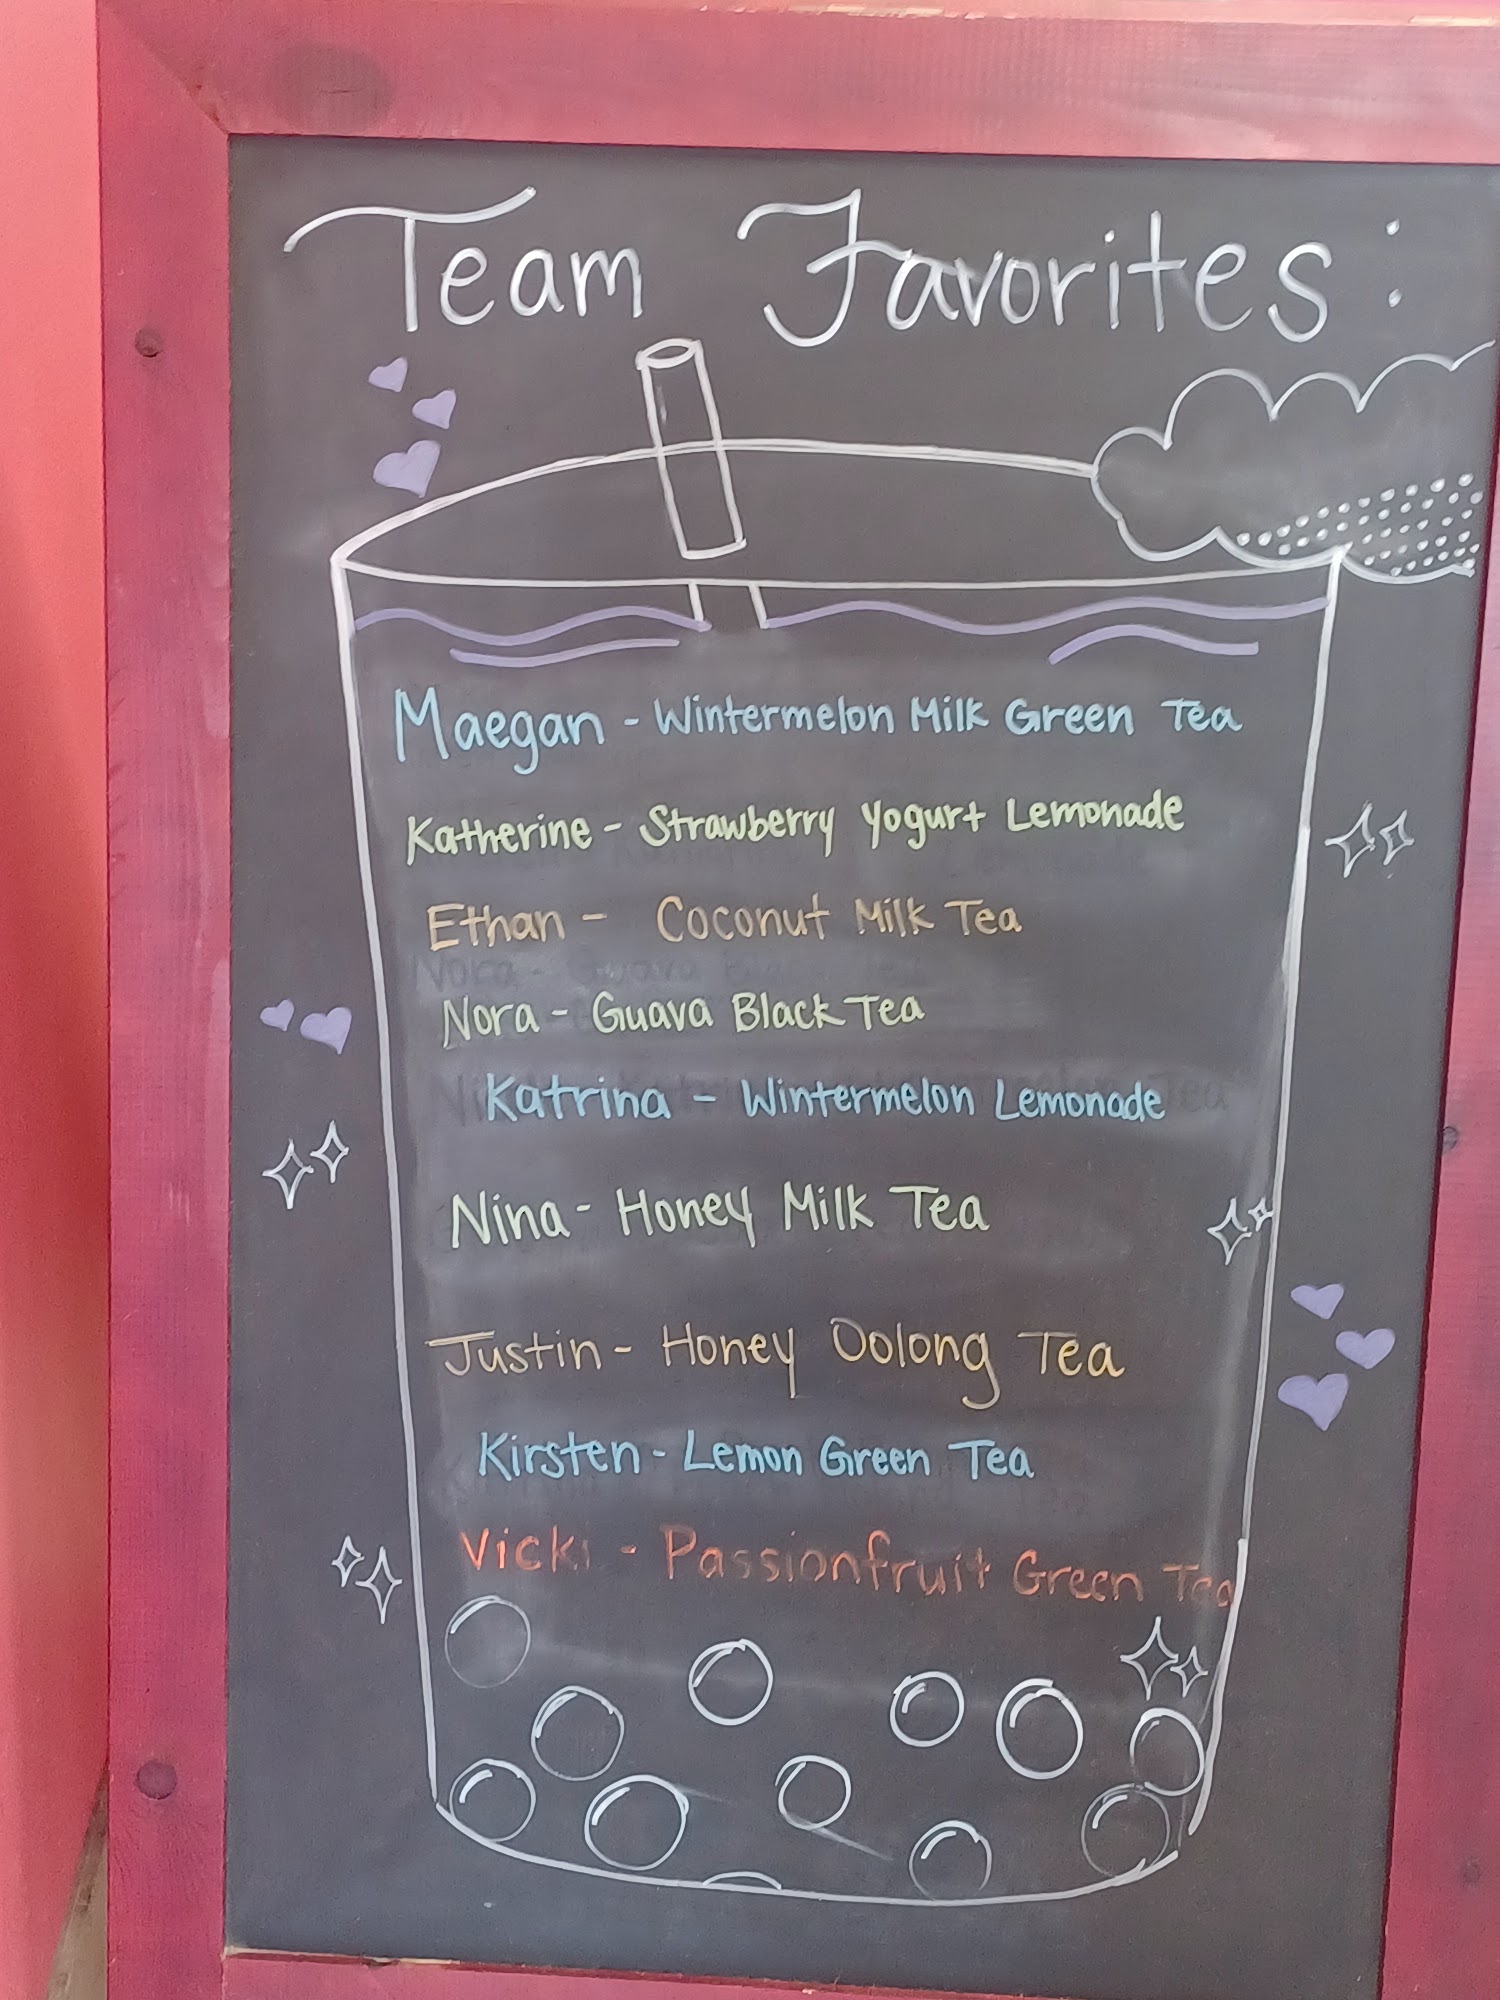 Team Favorites:
Maegan - Wintermelon Milk Green Tea
Katherine - Strawberry Yogurt Lemonade
Ethan - Coconut Milk Tea
Nora - Guava Black Tea
Katrina - Wintermelon Lemonade
Nina - Honey Milk Tea
Justin - Honey Oolong Tea
Kirsten - Lemon Green Tea
Vicki - Passionfruit Green Tea